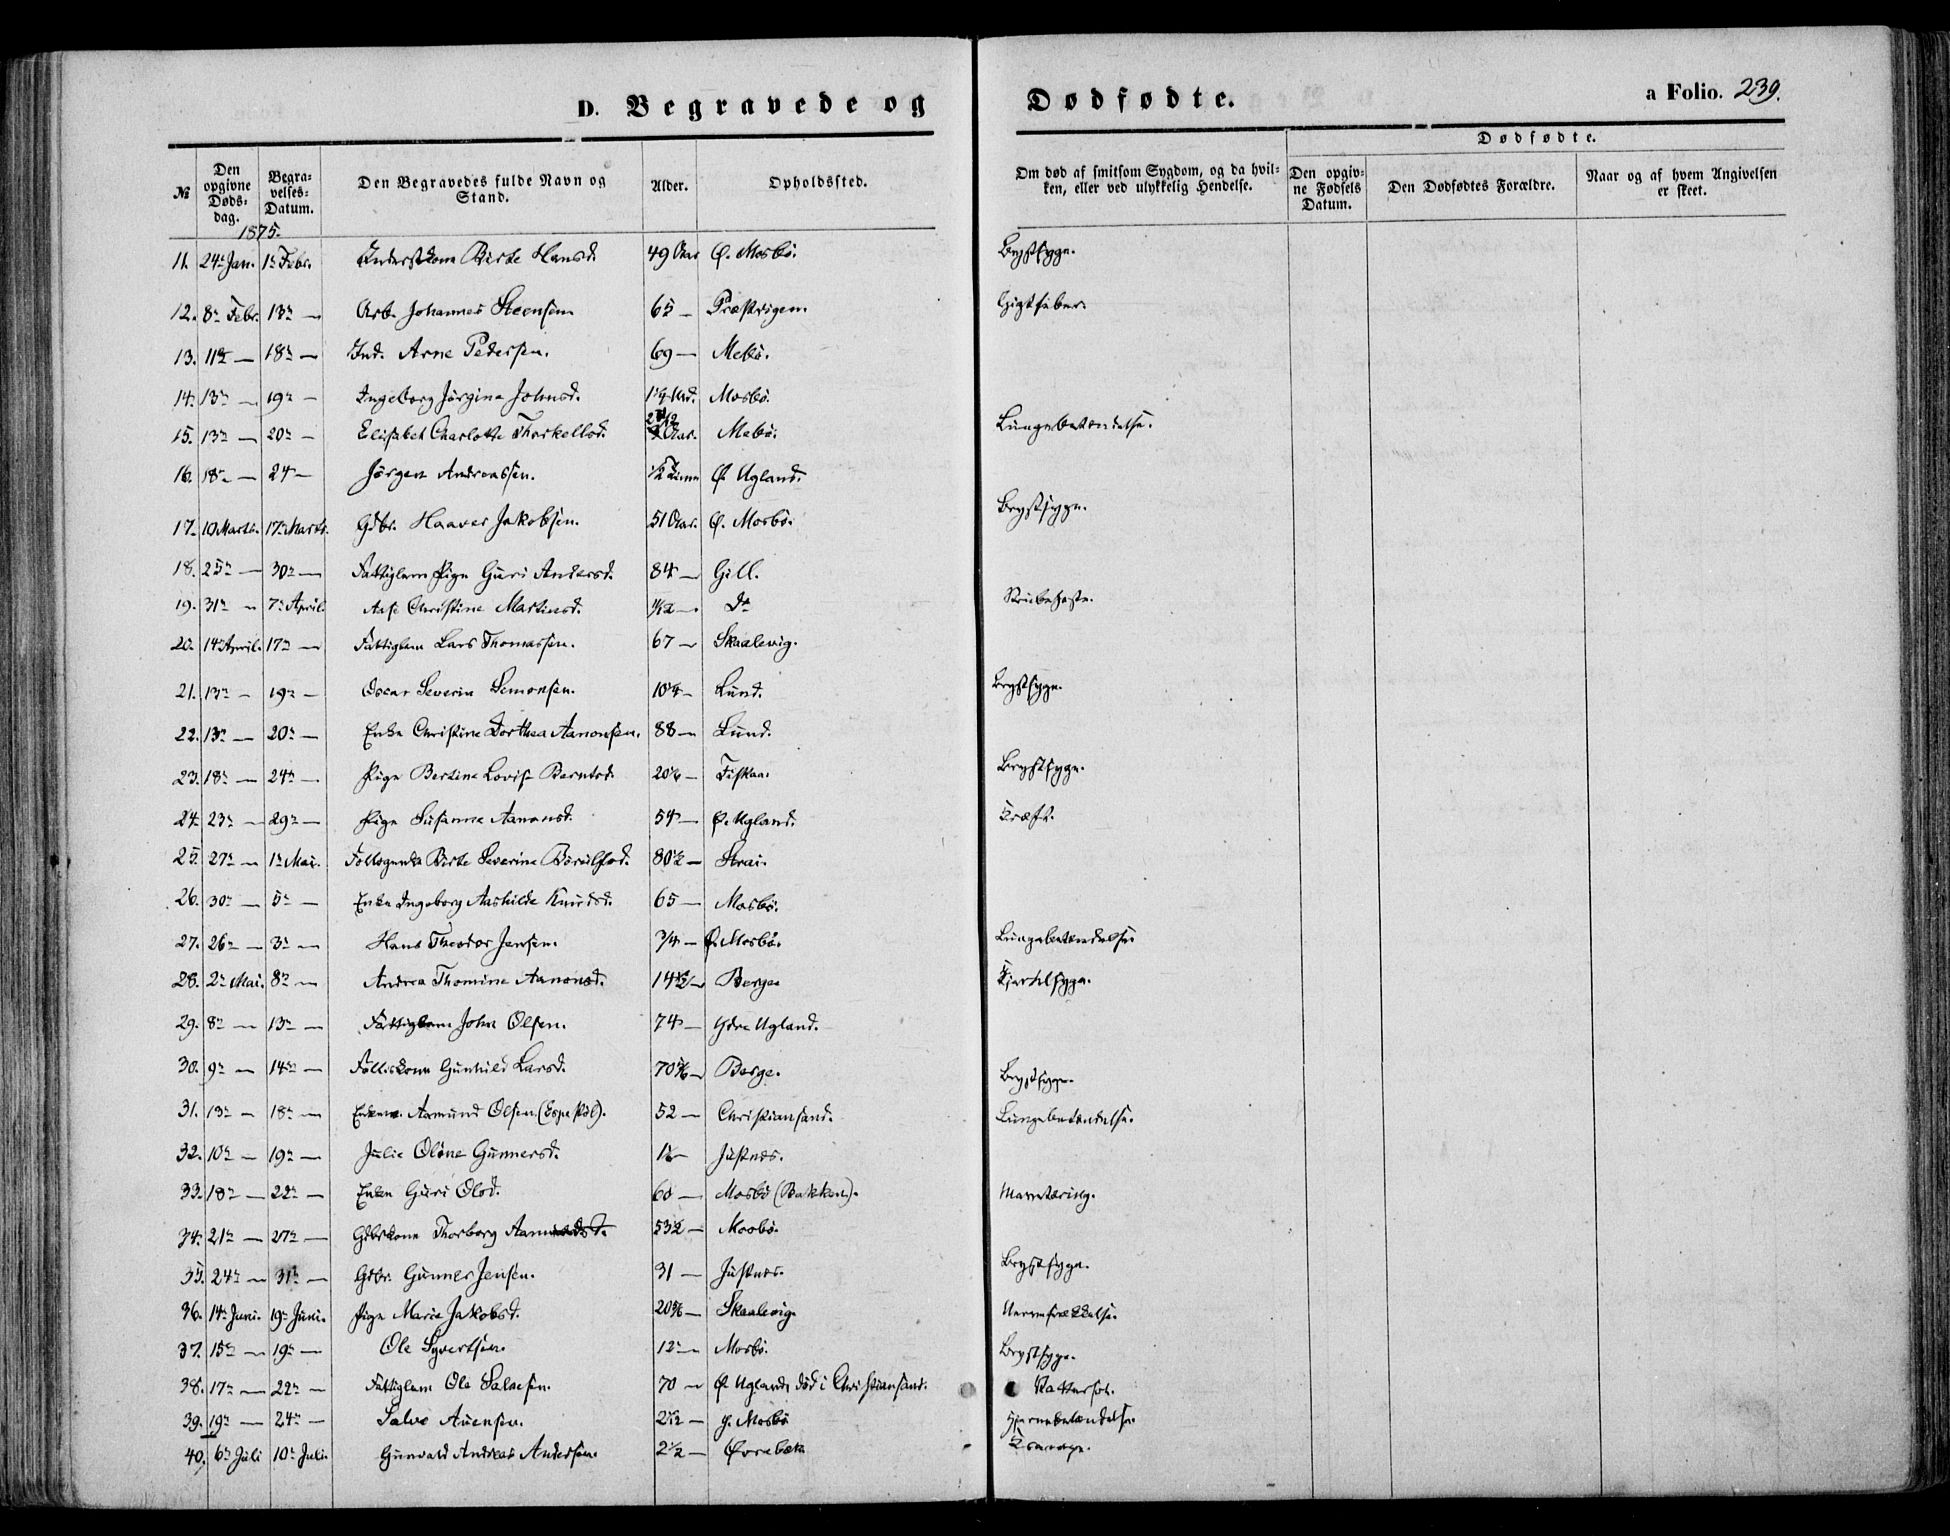 D. Begravede og Dødfødte. a Folio. 239.
Dødfødte.
№ Den opgivne Døds-dag. Begra-velses-Datum. Den Begravedes fulde Navn og Stand. Alder. Opholdssted. Om død af smitsom Sygdom, og da hvil-ken, eller ved ulykkelig Hendelse. Den opgiv-ne Fødsels Datum. Den Dødfødtes Forældre. Naar og af hvem Angivelsen er skeet.
1875.
11. 24n Jan. 1n Febr. Birte Hansd. 49 Aar Ø. Mosbö. Brystsyge.
12. 8n Febr. 13n — Arb. Johannes Steensen 65 — Gigtfeber.
13. 11n — 18n — Ind. Arne Pedersen. 69 — Mebö.
14. 13n — 19n — Ingeborg Jörgine Johnsd. Mosbö.
15. 13n — 20n — Elisabet Charlotte Thorkellsd. Mebö. Lungebetændelse.
16. 18n — 24 — Jörgen Andreassen. Ø. Ugland.
17. 10 Marts. 17n Marts. Gdbr. Haaver Jakobsen. 51 Aar. Ø. Mosbö. Brystsyge.
18. 25n — 30n — Fattiglem Pige Guri Andersd. 84 — Gill.
19. 31n — 7n April. Aase Christine Martinsd. Do Strubehoste.
20. 14n April. 17n — Fattiglem Lars Thomassen. 67 — Skaalevig.
21. 13n — 19n — Oscar Severin Simonsen. Lund. Brystsyge.
22. 13n — 20n — Enke Christine Dorthea Aanonsen. 88 — Lund.
23. 18n — 24n — Pige Bertine Lovise Berntsd. Fiskaa. Brystsyge.
24. 23n — 29n — Pige Susanne Aanonsd. 54 — Ø. Ugland. Kræft.
25. 27n — 1n Mai. Birte Severine 80½ — Strai.
26. 30n — 5n — Enke Ingeborg Aashilde Knudsd. 65 — Mosbö.
27. 26n — 3n — Hans Theodor Jensen. 3/4 — Ø. Mosbö. Lungebetændelse
28. 2n Mai. 8n — Andrea Thomine Aanonsd. Berge. Kjertelsyge.
29. 8n — 13n — Fattiglem John Olsen. 74 — Ydre Ugland.
30. 9n — 14n — Gunhild Larsd. Berge. Brystsyge.
31. 13n — 18n — Enkem. Aamund Olsen. (Espestöl). 52 — Christiansand. Lungebetændelse.
32. 10n — 19n — Julie Oléne Gunnersd. Justnes.
33. 18n — 22n — Enke Guri Olsd. 60 — Mosbö (Bakken). Mavetæring.
34. 21n — 27n — Gdbrkone Thorborg 53½ — Mosbö.
35. 24n — 31n — Gdbr. Gunner Jensen. 31 — Justnes. Brystsyge.
36. 14n Juni. 19n Juni. Pige Marie Jakobsd. Skaalevig.
37. 15n — 19n — Ole Syvertsen. 12 — Mosbö. Brystsyge.
38. 17n — 22n — Fattiglem Ole Salvesen. 70 — Ø. Ugland, död i Christiansand. Vattersot.
39. 19n — 24n — Salve Auensen. Mosbö Hjernebetændelse.
40. 6n Juli 10n Juli. Gunvald Andreas Andersen. 2½ — Øvrebæk